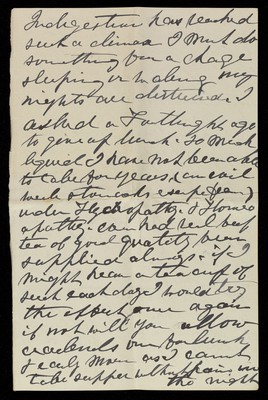 Indigestion has reached
such a climax I must do
something for a change
sleeping or waking my
nights are disturbed. I
asked a Fortnight ago
to give up lunch. So much
liquid I have not been able
to take for years, can
weak stomachs except
under Hydropathy. & Homeo
=pathy. can had real beef
tea of good quality been
supplied always. if I
might have a tea cup of
such each day I would try
the effect once again
if not will you allow
me for lunch
& early as I cannot
take supper without pain in
the night